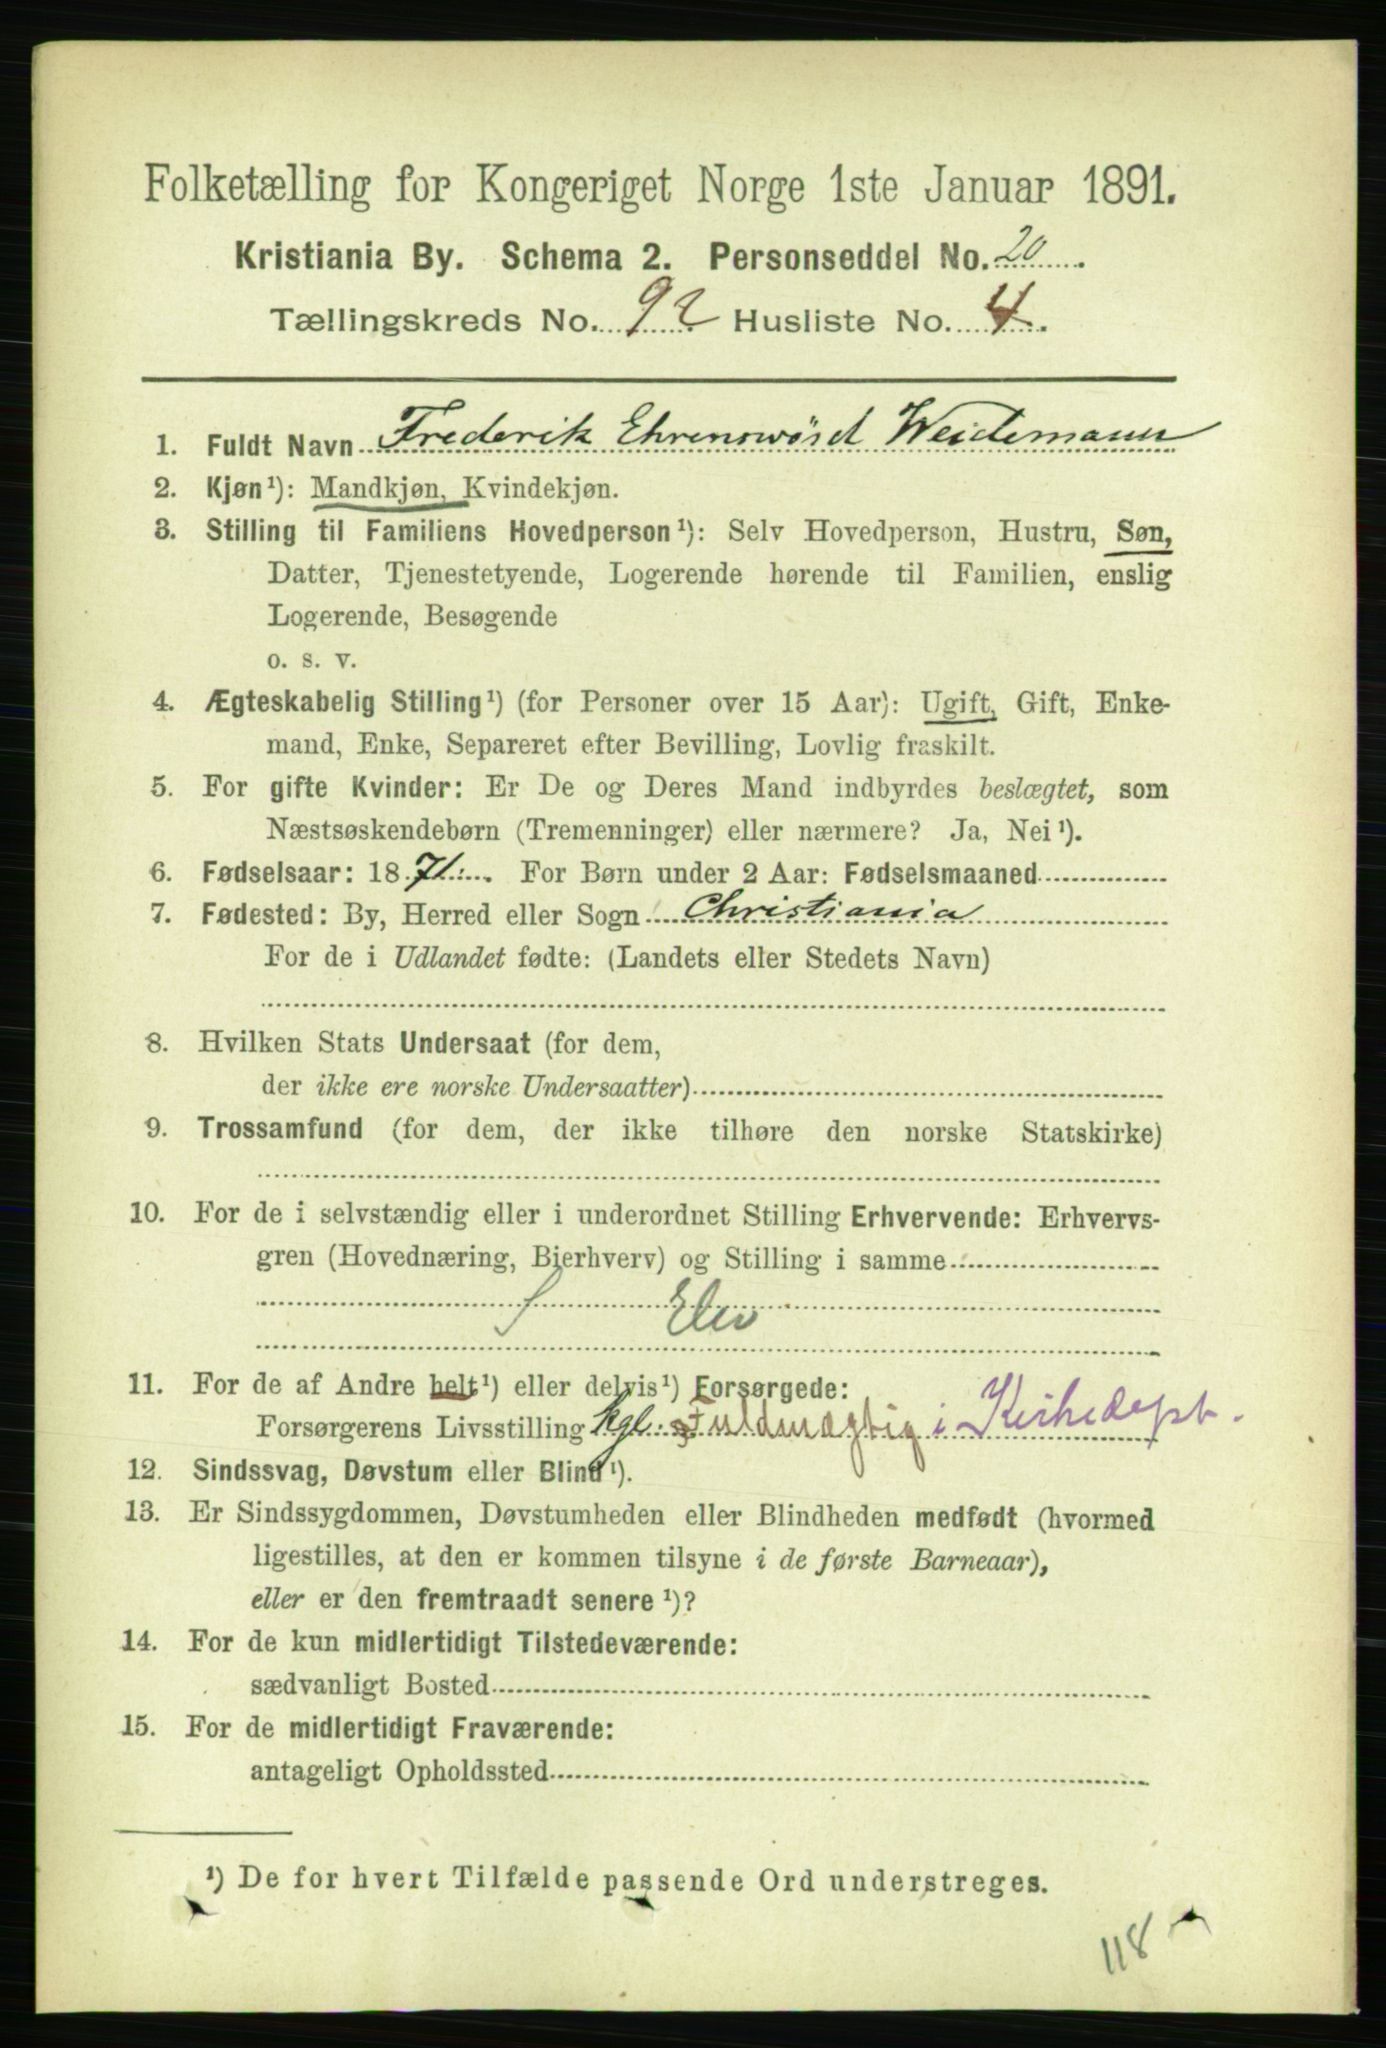 Folketælling for Kongeriget Norge 1ste Januar 1891.
Kristiania By. Schema 2. Personseddel No. 20.
Tællingskreds No. 92 Husliste No. 4.
1. Fuldt Navn Frederik Ehrensvörd Weidemann
2. Kjøn¹): Mandkjøn, Kvindekjøn.
3. Stilling til Familiens Hovedperson¹): Selv Hovedperson, Hustru, Søn,
Datter, Tjenestetyende, Logerende hørende til Familien, enslig
Logerende, Besøgende
o. s. v.
4. Ægteskabelig Stilling¹) (for Personer over 15 Aar): Ugift, Gift, Enke-
mand, Enke, Separeret efter Bevilling, Lovlig fraskilt.
5. For gifte Kvinder: Er De og Deres Mand indbyrdes beslægtet, som
Næstsøskendebørn (Tremenninger) eller nærmere? Ja, Nei¹).
6. Fødselsaar: 1871. For Børn under 2 Aar: Fødselsmaaned
7. Fødested: By, Herred eller Sogn Christiania
For de i Udlandet fødte: (Landets eller Stedets Navn)
8. Hvilken Stats Undersaat (for dem,
der ikke ere norske Undersaatter)
9. Trossamfund (for dem, der ikke tilhøre den norske Statskirke)
10. For de i selvstændig eller i underordnet Stilling Erhvervende: Erhvervs-
gren (Hovednæring, Bierhverv) og Stilling i samme
Elev
11. For de af Andre helt¹) eller delvis¹) Forsørgede:
Forsørgerens Livsstilling kgl. Fuldmægtig i Kirkedept.
12. Sindssvag, Døvstum eller Blind¹).
13. Er Sindssygdommen, Døvstumheden eller Blindheden medfødt (hvormed
ligestilles, at den er kommen tilsyne i de første Barneaar),
eller er den fremtraadt senere¹)?
14. For de kun midlertidigt Tilstedeværende:
sædvanligt Bosted
15. For de midlertidigt Fraværende:
antageligt Opholdssted
¹) De for hvert Tilfælde passende Ord understreges.
118